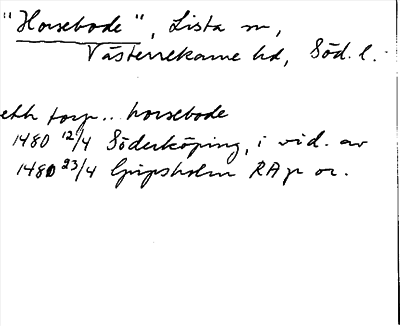 "Horsebode", Lista sn,
Västerrekarne hd, Söd. l.
eth torp.. horsebode
1480 12/4 Söderköping, i vid. av
1480 23/4 Gripsholm RAp or.